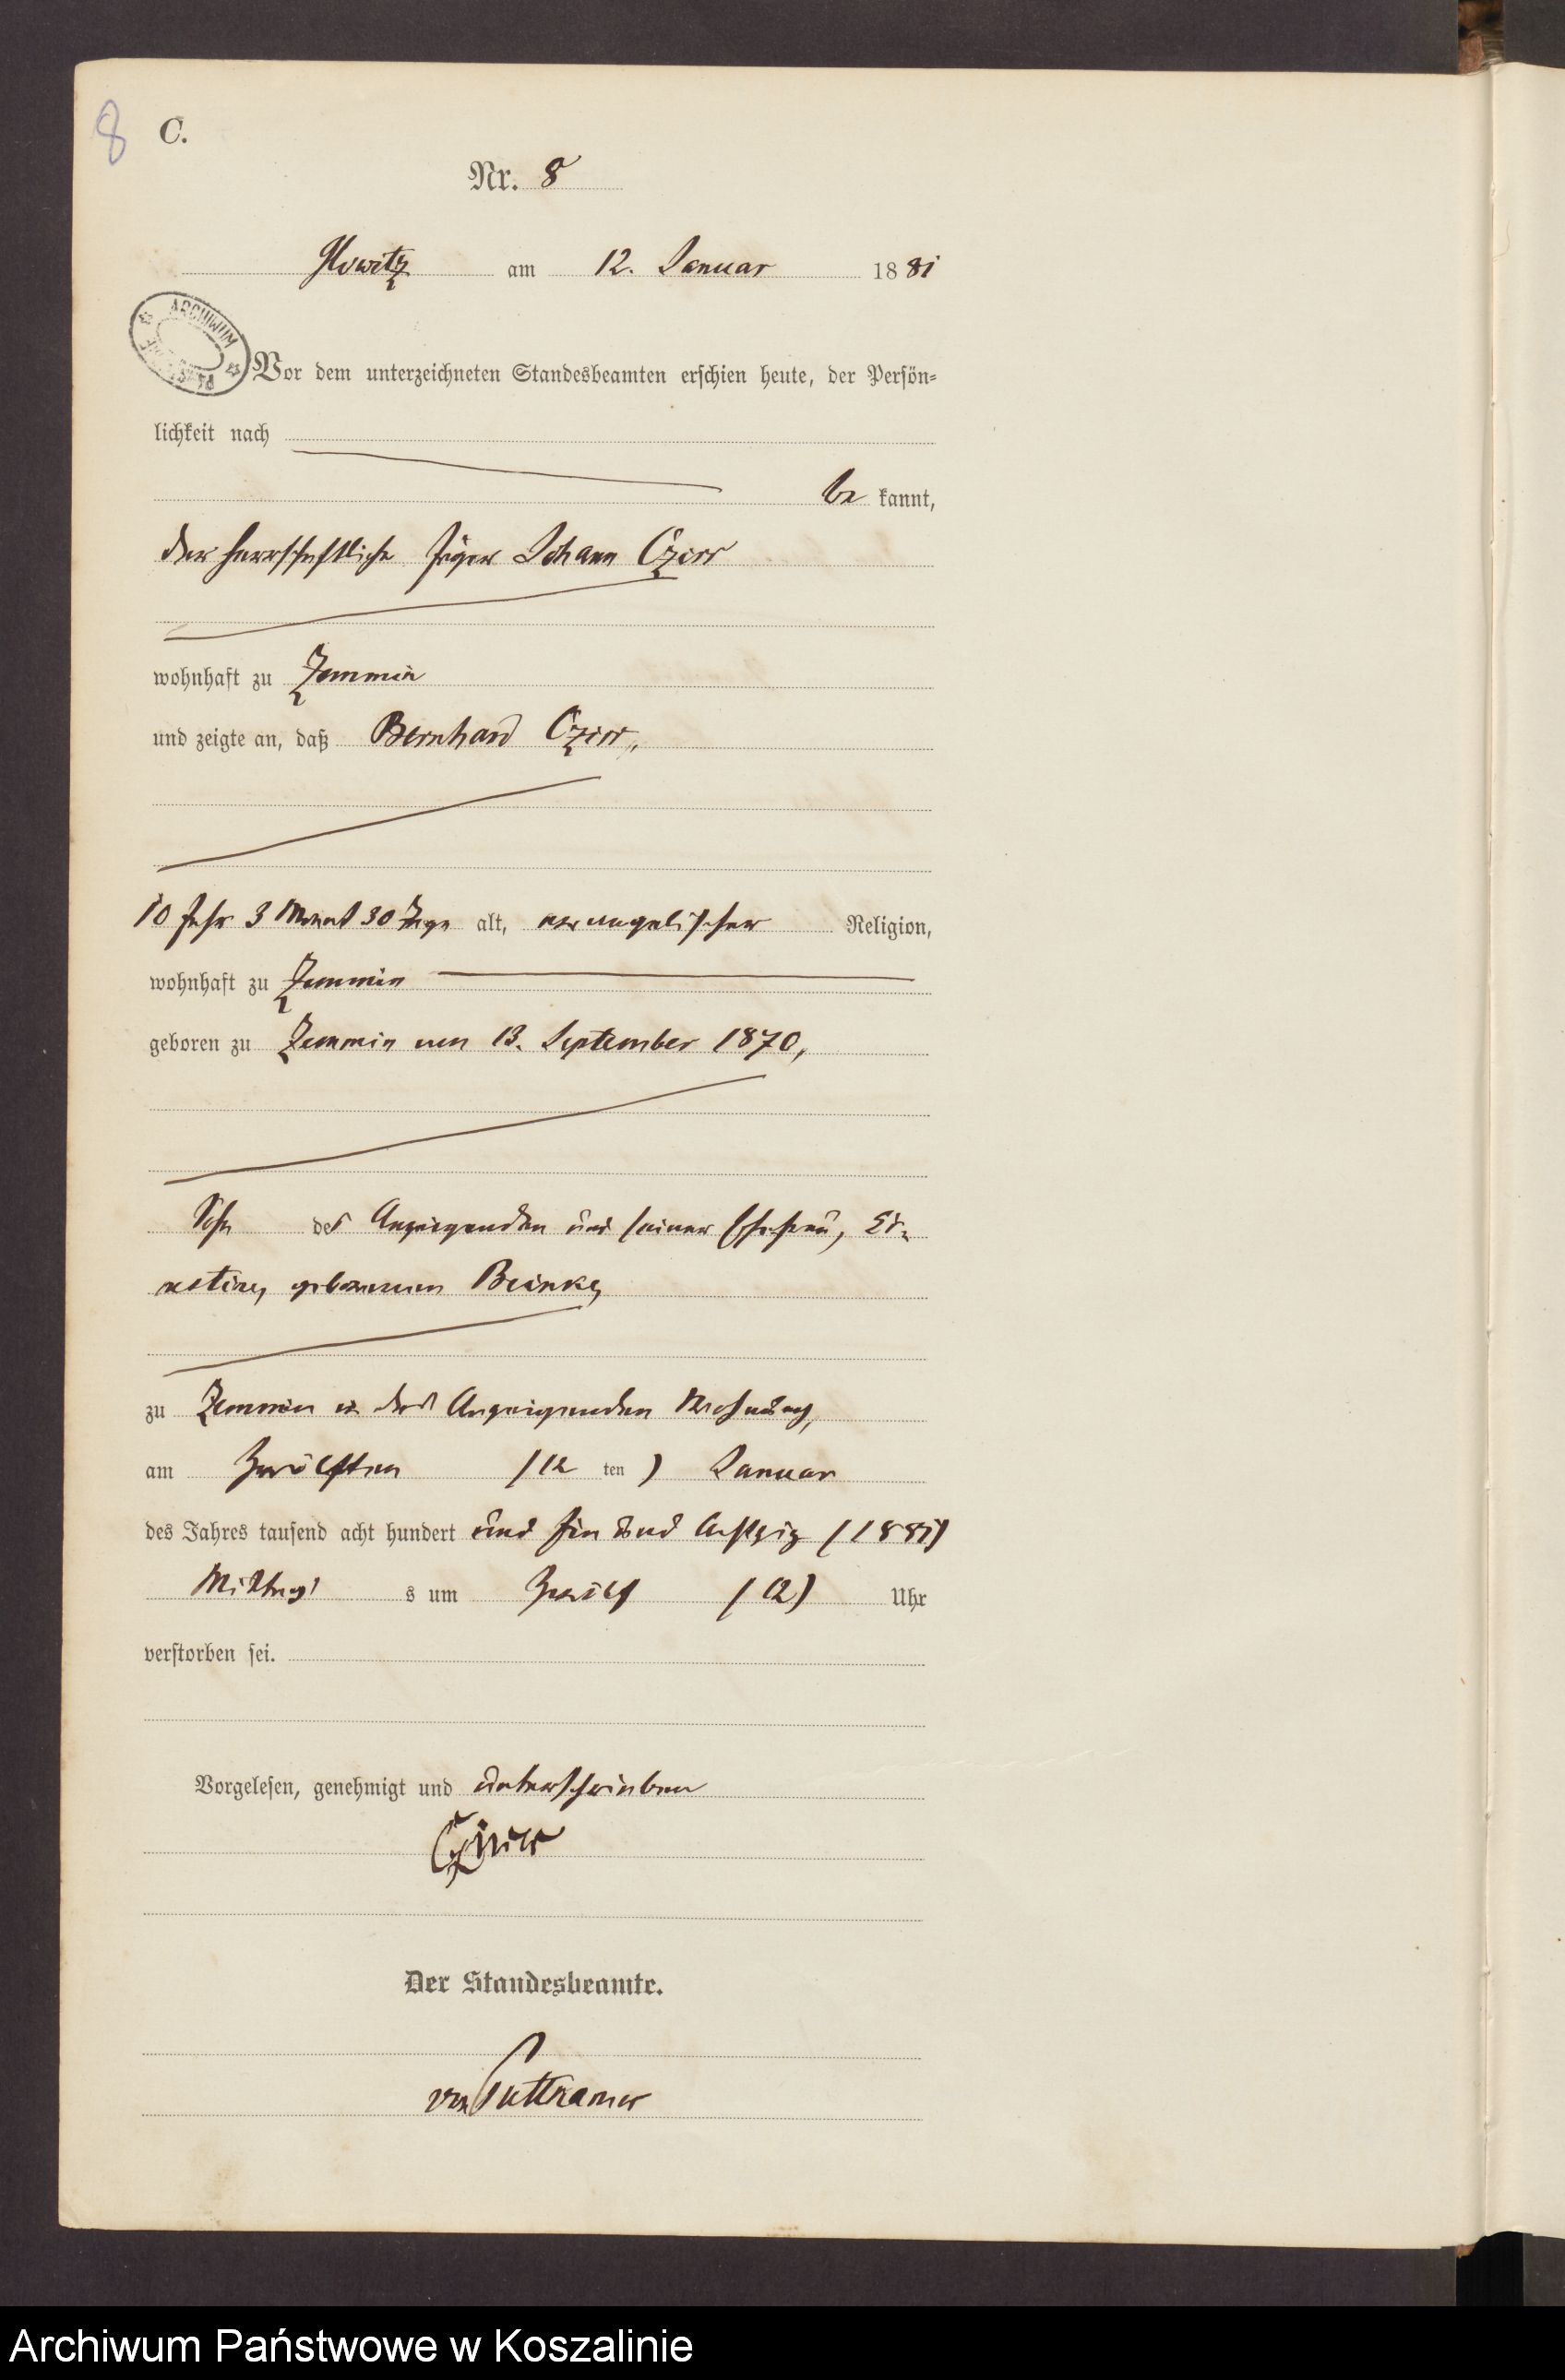 8
C.
Nr. 8
Glowitz am 12. Januar 1881
ARCHIWUM
Vor dem unterzeichneten Standesbeamten erschien heute, der Persön-
lichkeit nach
be kannt,
der herrschaftliche Jäger Johann Czirr
wohnhaft zu Zemmin
und zeigte an, daß Bernhard Czirr,
10 Jahr 3 Monat 30 Tage alt, evangelischer Religion,
wohnhaft zu Zemmin
geboren zu Zemmin am 13. September 1870,
Sohn des Anzeigenden und seiner Ehefrau, Er-
nestine, geborenen
zu Zemmin in des Anzeigenden Wohnung,
am zwölften (12 ten) Januar
des Jahres tausend acht hundert und ein und achtzig (1881)
Mittags um zwölf (12) Uhr
verstorben sei.
Vorgelesen, genehmigt und unterschrieben
Der Standesbeamte.
von Puttkamer
Archiwum Państwowe w Koszalinie